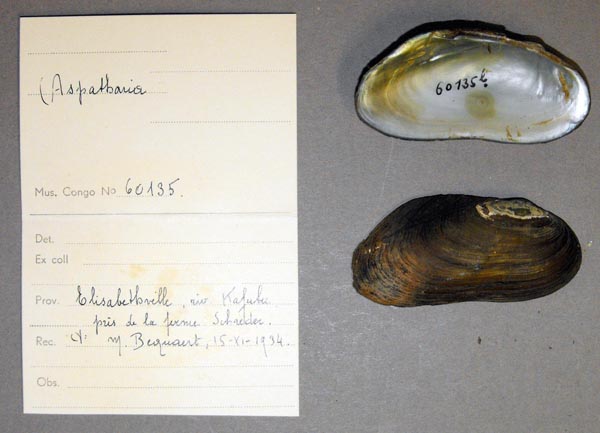 (Aspatharia
Mus. Congo No 60135.
Det.
Ex coll
Prov. Elisabethville, riv. Kafubu
près de la ferme Schröder.
Rec. Dr M. Bequaert, 15-XI-1934.
Obs.
60135